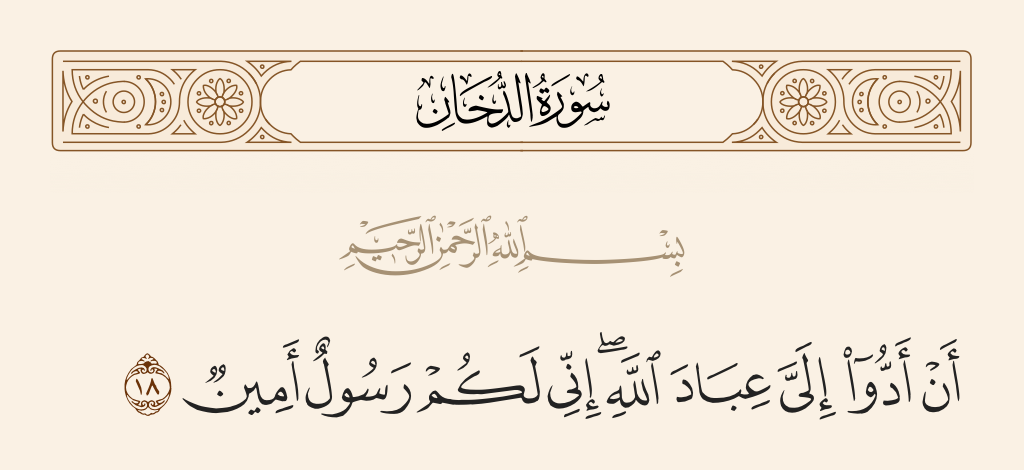 سُورَةُ الدُّخَانِ
بِسْمِ ٱللَّهِ ٱلرَّحْمَٰنِ ٱلرَّحِيمِ
أَنْ أَدُّوٓا۟ إِلَىَّ عِبَادَ ٱللَّهِ ۖ إِنِّى لَكُمْ رَسُولٌ أَمِينٌ ١٨